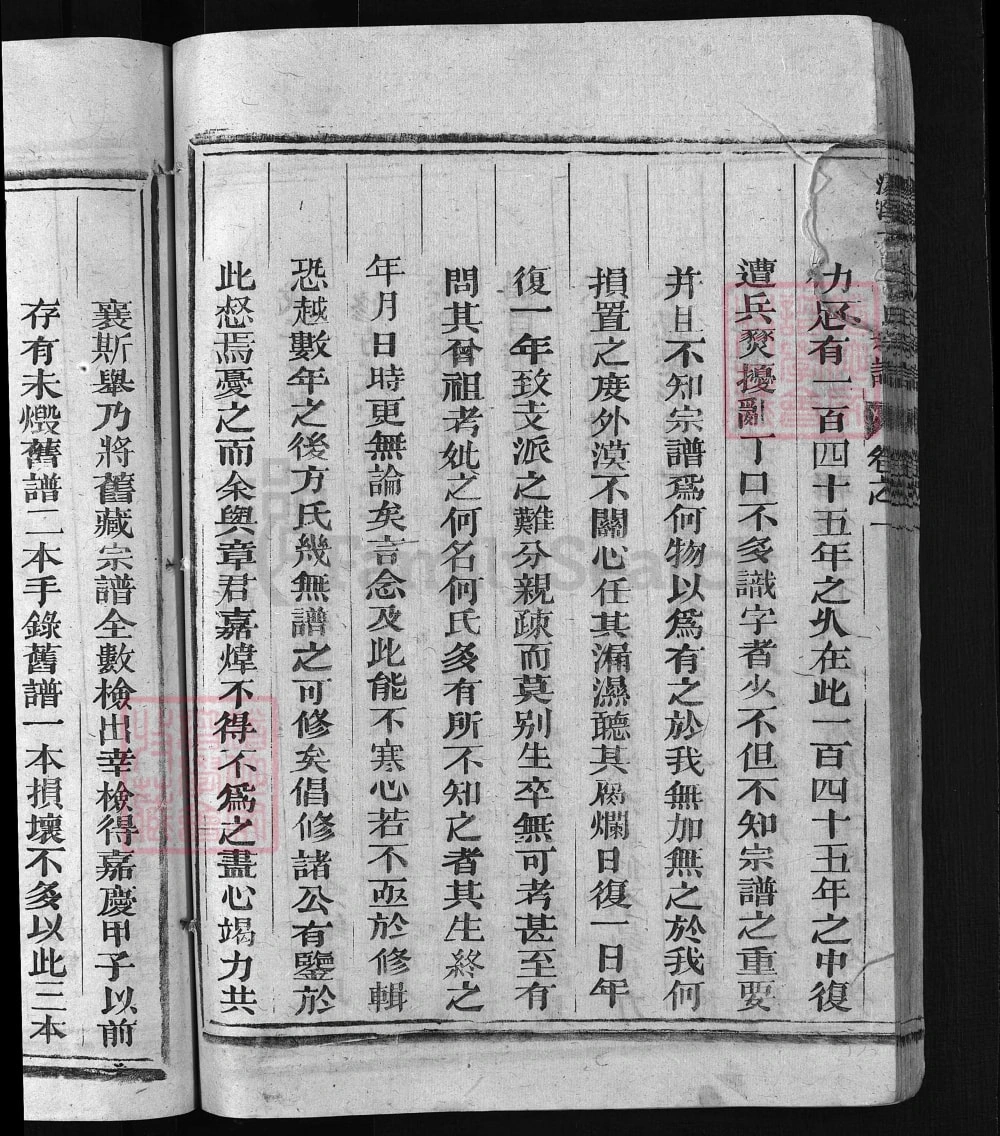 力忽有一百四十五年之久在此一百四十五年之中復
遭兵燹擾亂丁口不多識字者少不但不知宗譜之重要
并且不知宗譜爲何物以爲有之於我無加無之於我何
損置之度外漠不關心任其漏濕聽其腐爛日復一日年
復一年致支派之難分親疎而莫别生卒無可考甚至有
問其曾祖考妣之何名何氏多有所不知之者其生終之
年月日時更無論矣言念及此能不寒心若不亟於修輯
恐越數年之後方氏幾無譜之可修矣倡修諸公有鑒於
此惄焉憂之而余與章君嘉煒不得不爲之盡心竭力共
襄斯舉乃將舊藏宗譜全數檢出幸檢得嘉慶甲子以前
存有未燬舊譜二本手錄舊譜一本損壞不多以此三本
卷之一
FamilySearch